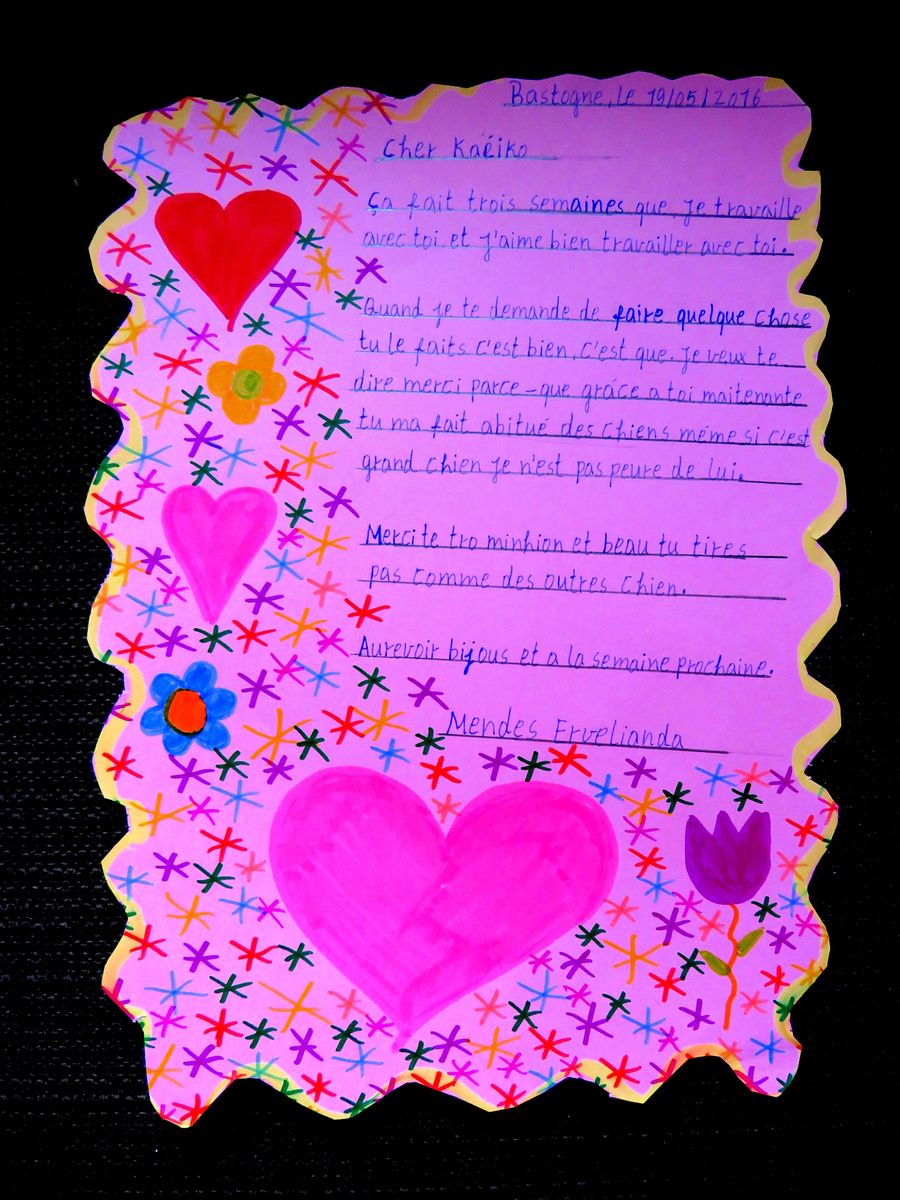 Bastogne, le 19/05/2016
Cher Kaëiko
Ça fait trois semaines que je travaille
avec toi et j'aime bien travailler avec toi.
Quand je te demande de faire quelque chose
tu le faits c'est bien, c'est que. Je veux te
dire merci parce-que grâce a toi maitenante
tu ma fait abitué des chiens même si c'est
grand chien je n'est pas peure de lui.
Merci te tro minhion et beau tu tires
pas comme des outres chien.
Aurevoir bijous et a la semaine prochaine.
Mendes Ervelianda